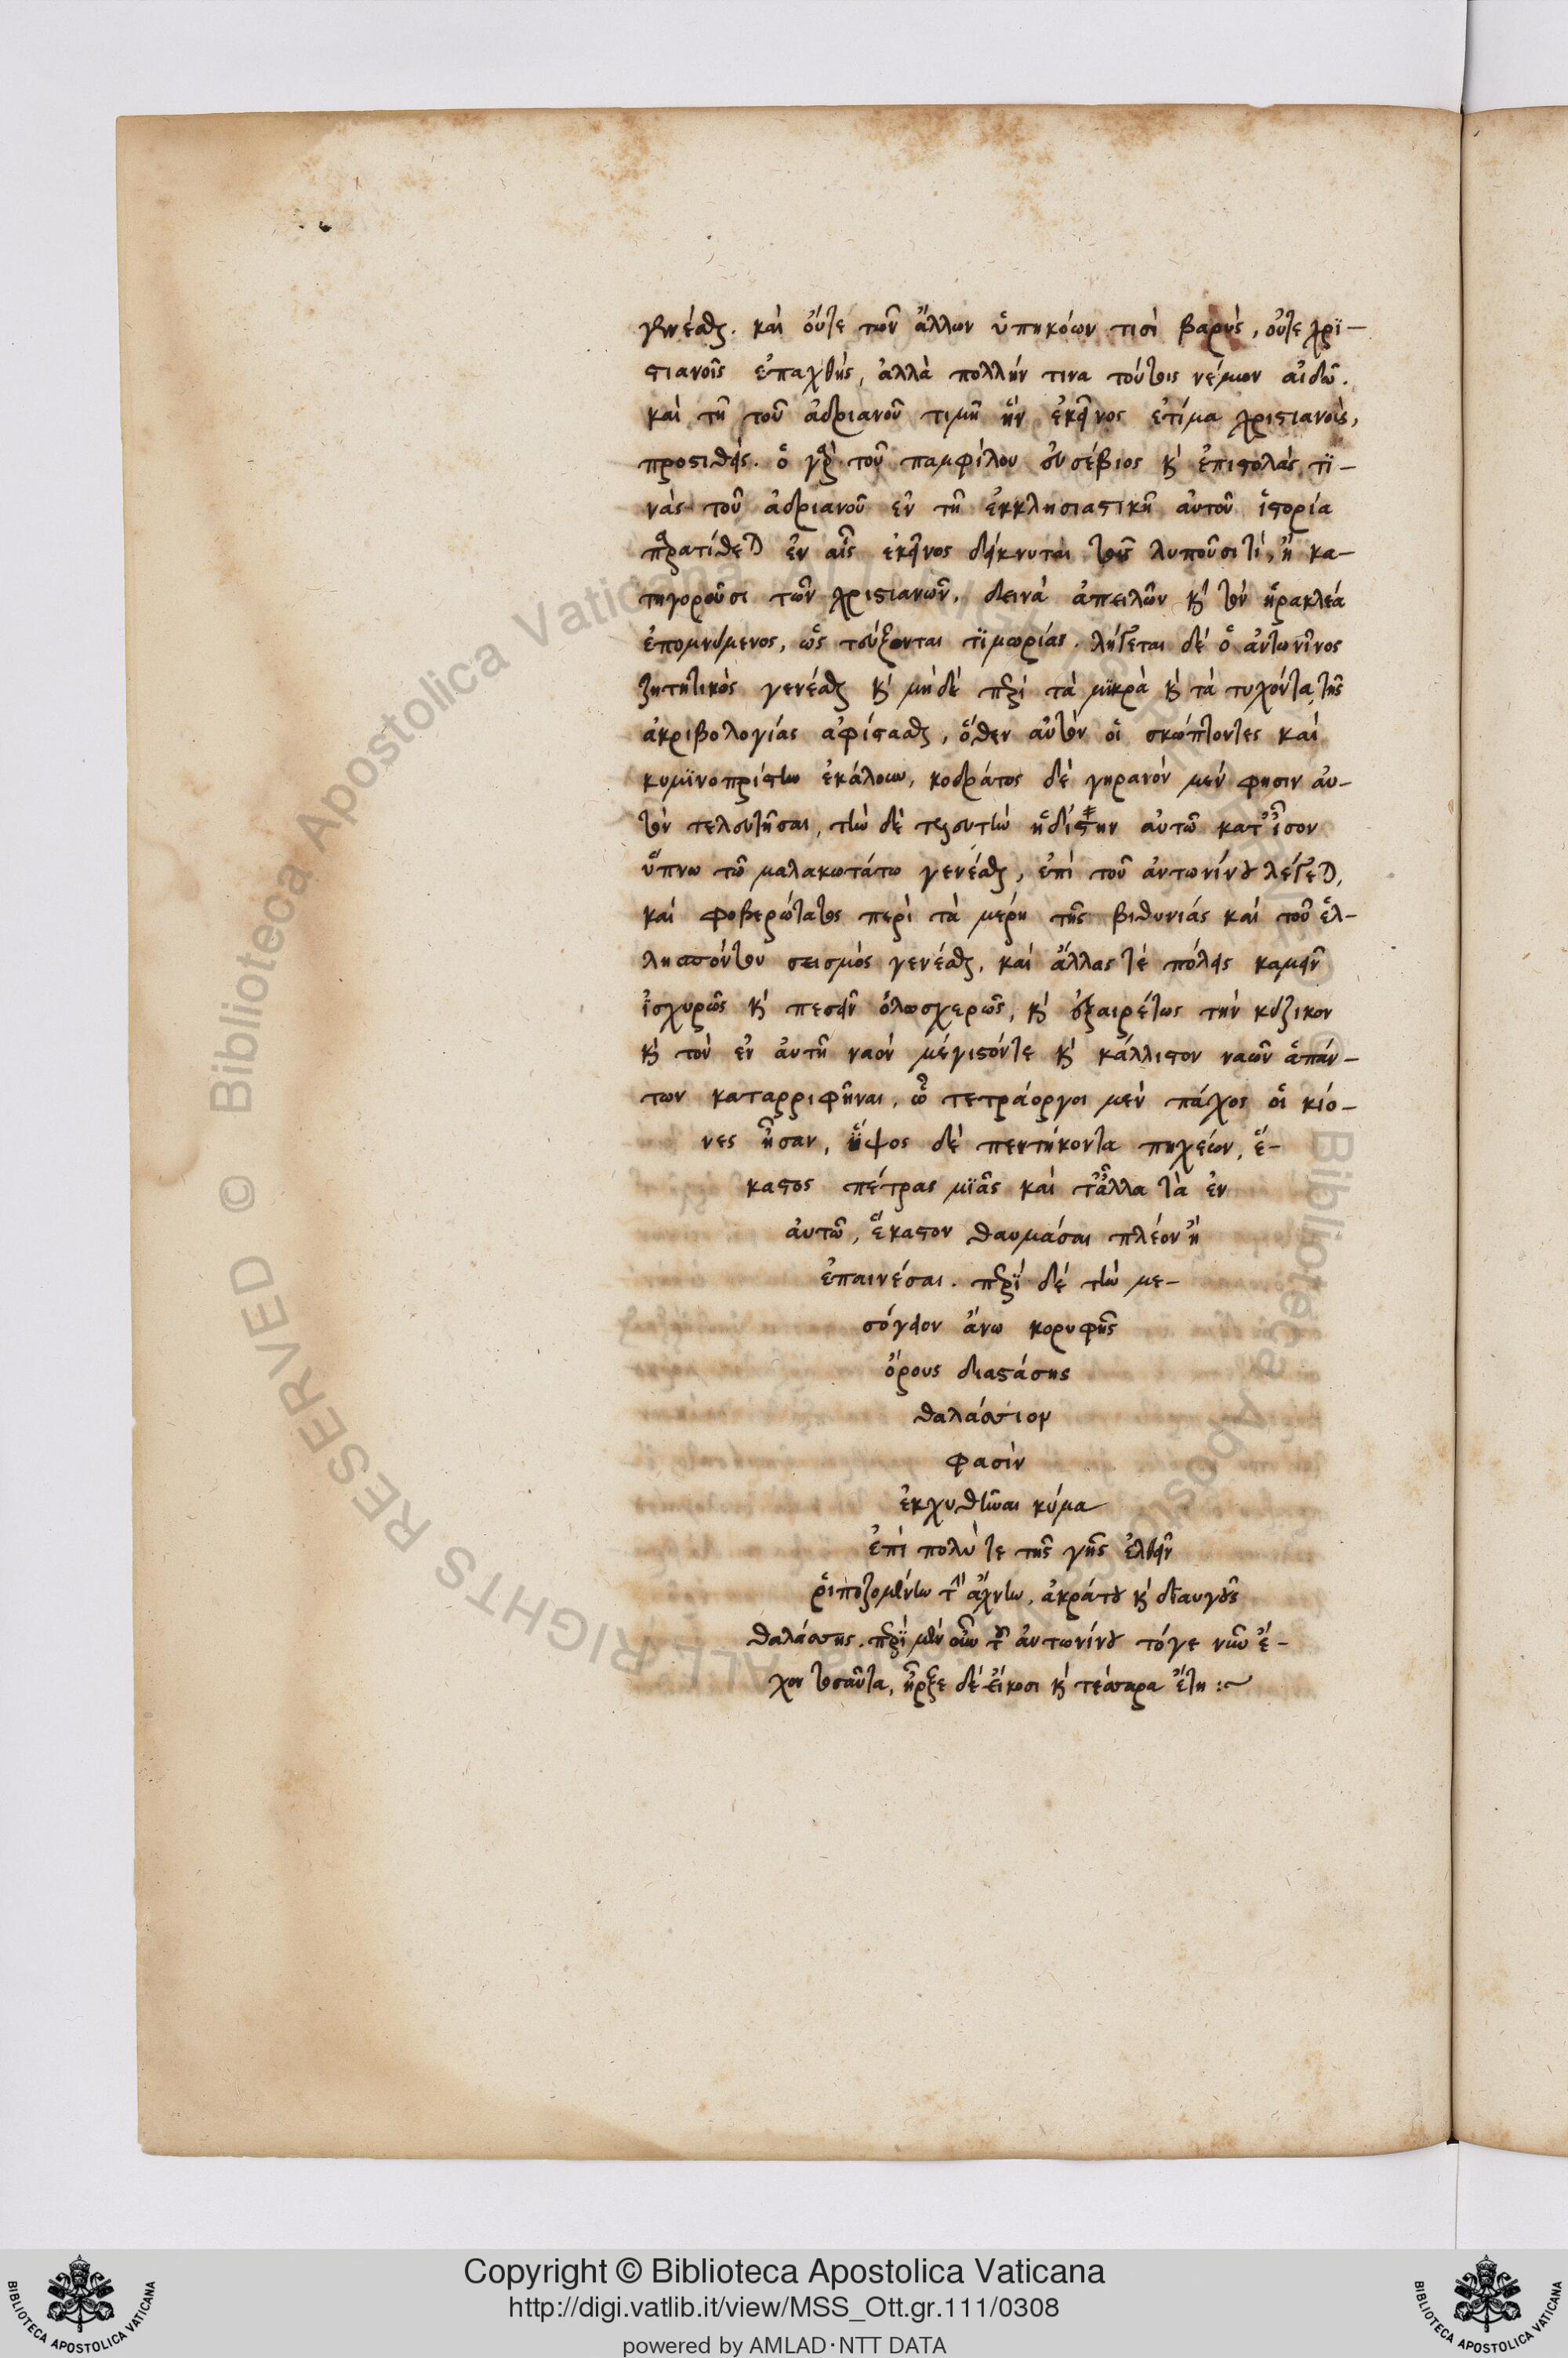 γενέσθαι. καὶ οὔτε τῶν ἄλλων ὑπηκόων τισὶ βαρὺς, οὔτε χρϊ-
στιανοῖς ἐπαχθὴς, ἀλλὰ πολλήν τινα τούτοις νέμων αἰδῶ.
καὶ τῆ τοῦ ἀδριανοῦ τιμῆ ἣν ἐκεῖνος ἐτίμα χριστιανοὺς,
προστιθείς. ὁ γὰρ τοῦ παμφίλου εὐσέβιος κὶ ἐπιστολάς τϊ-
νὰς τοῦ ἀδριανοῦ ἐν τῆ ἐκκλησιαστικῆ αὐτοῦ ἱστορία
παρατίθεται ἐν αἷς ἐκεῖνος δείκνυται τοῖς λυποῦσι τὶ, ἢ κα-
τηγοροῦσι τῶν χριστιανῶν, δεινὰ ἀπειλῶν κὶ τὸν ἡρακλέα
ἐπομνύμενος, ὡς τεύξονται τϊμωρίας. λέγεται δὲ ὁ ἀντωνῖνος
ζητητικὸς γενέσθαι κὶ μηδὲ περὶ τὰ μϊκρὰ κὶ τὰ τυχόντα τῆς
ἀκριβολογίας ἀφίστασθαι, ὅθεν αὐτὸν οἱ σκώπτοντες καὶ
κυμϊνοπρίστην ἐκάλουν, κοδράτος δὲ γηραιόν μέν φησιν αὐ-
τὸν τελευτῆσαι, τὴν δὲ τελευτὴν ἡδίστην αὐτῶ κατ' ἴσον
ὕπνω τῶ μαλακωτάτω γενέσθαι, ἐπὶ τοῦ ἀντωνίνου λέγεται,
καὶ φοβερώτατος περὶ τὰ μέρη τῆς βιθυνιάς καὶ τοῦ ἑλ-
λησπόντου σεισμὸς γενέσθαι, καὶ ἄλλας τὲ πόλεις καμεῖν
ἰσχυρῶς κὶ πεσεῖν ὁλοσχερῶς, κὶ ἐξαιρέτως τὴν κύζικον
κὶ τὸν ἐν αὐτῆ ναὸν μέγιστόντε κὶ κάλλιστον ναῶν ἁπάν-
των καταρριφῆναι, ὧ τετράοργοι μὲν πάχος οἱ κίο-
νες ἦσαν, ὕψος δὲ πεντήκοντα πηχέων, ἕ-
καστος πέτρας μϊᾶς καὶ τἄλλα τὰ ἐν
αὐτῶ, ἕκαστον θαυμάσαι πλέον ἢ
ἐπαινέσαι. περϊ δὲ τὴν με-
σόγειον ἄνω κορυφῆς
ὄρους διαστάσης
θαλάσσιον
φασὶν
ἐκχυθῆναι κύμα
ἐπὶ πολύ τε τῆς γῆς ἐλθεῖν
ῥιπιζομένην τὴν ἄχνην, ἀκράτου κὶ διαυγοῦς
θαλάσσης. περὶ μὲν οὖν τοῦ ἀντωνίνου τόγε νῦν ἔ-
χον τοσαῦτα, ἦρξε δὲ εἴκοσι κὶ τέσσαρα ἔτη :~
Copyright © Biblioteca Apostolica Vaticana
http://digi.vatlib.it/view/MSS_Ott.gr.111/0308
powered by AMLAD·NTT DATA